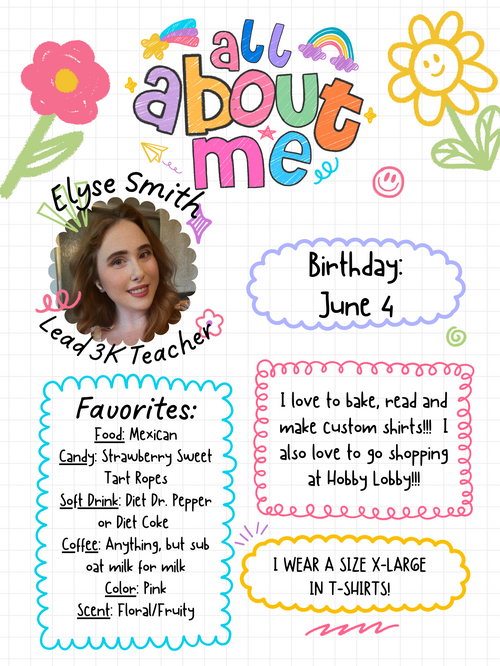 all
about
me
Elyse Smith
Lead 3K Teacher
Birthday:
June 4
Favorites:
Food: Mexican
Candy: Strawberry Sweet
Tart Ropes
Soft Drink: Diet Dr. Pepper
or Diet Coke
Coffee: Anything, but sub
oat milk for milk
Color: Pink
Scent: Floral/Fruity
I love to bake, read and
make custom shirts!!! I
also love to go shopping
at Hobby Lobby!!!
I WEAR A SIZE X-LARGE
IN T-SHIRTS!